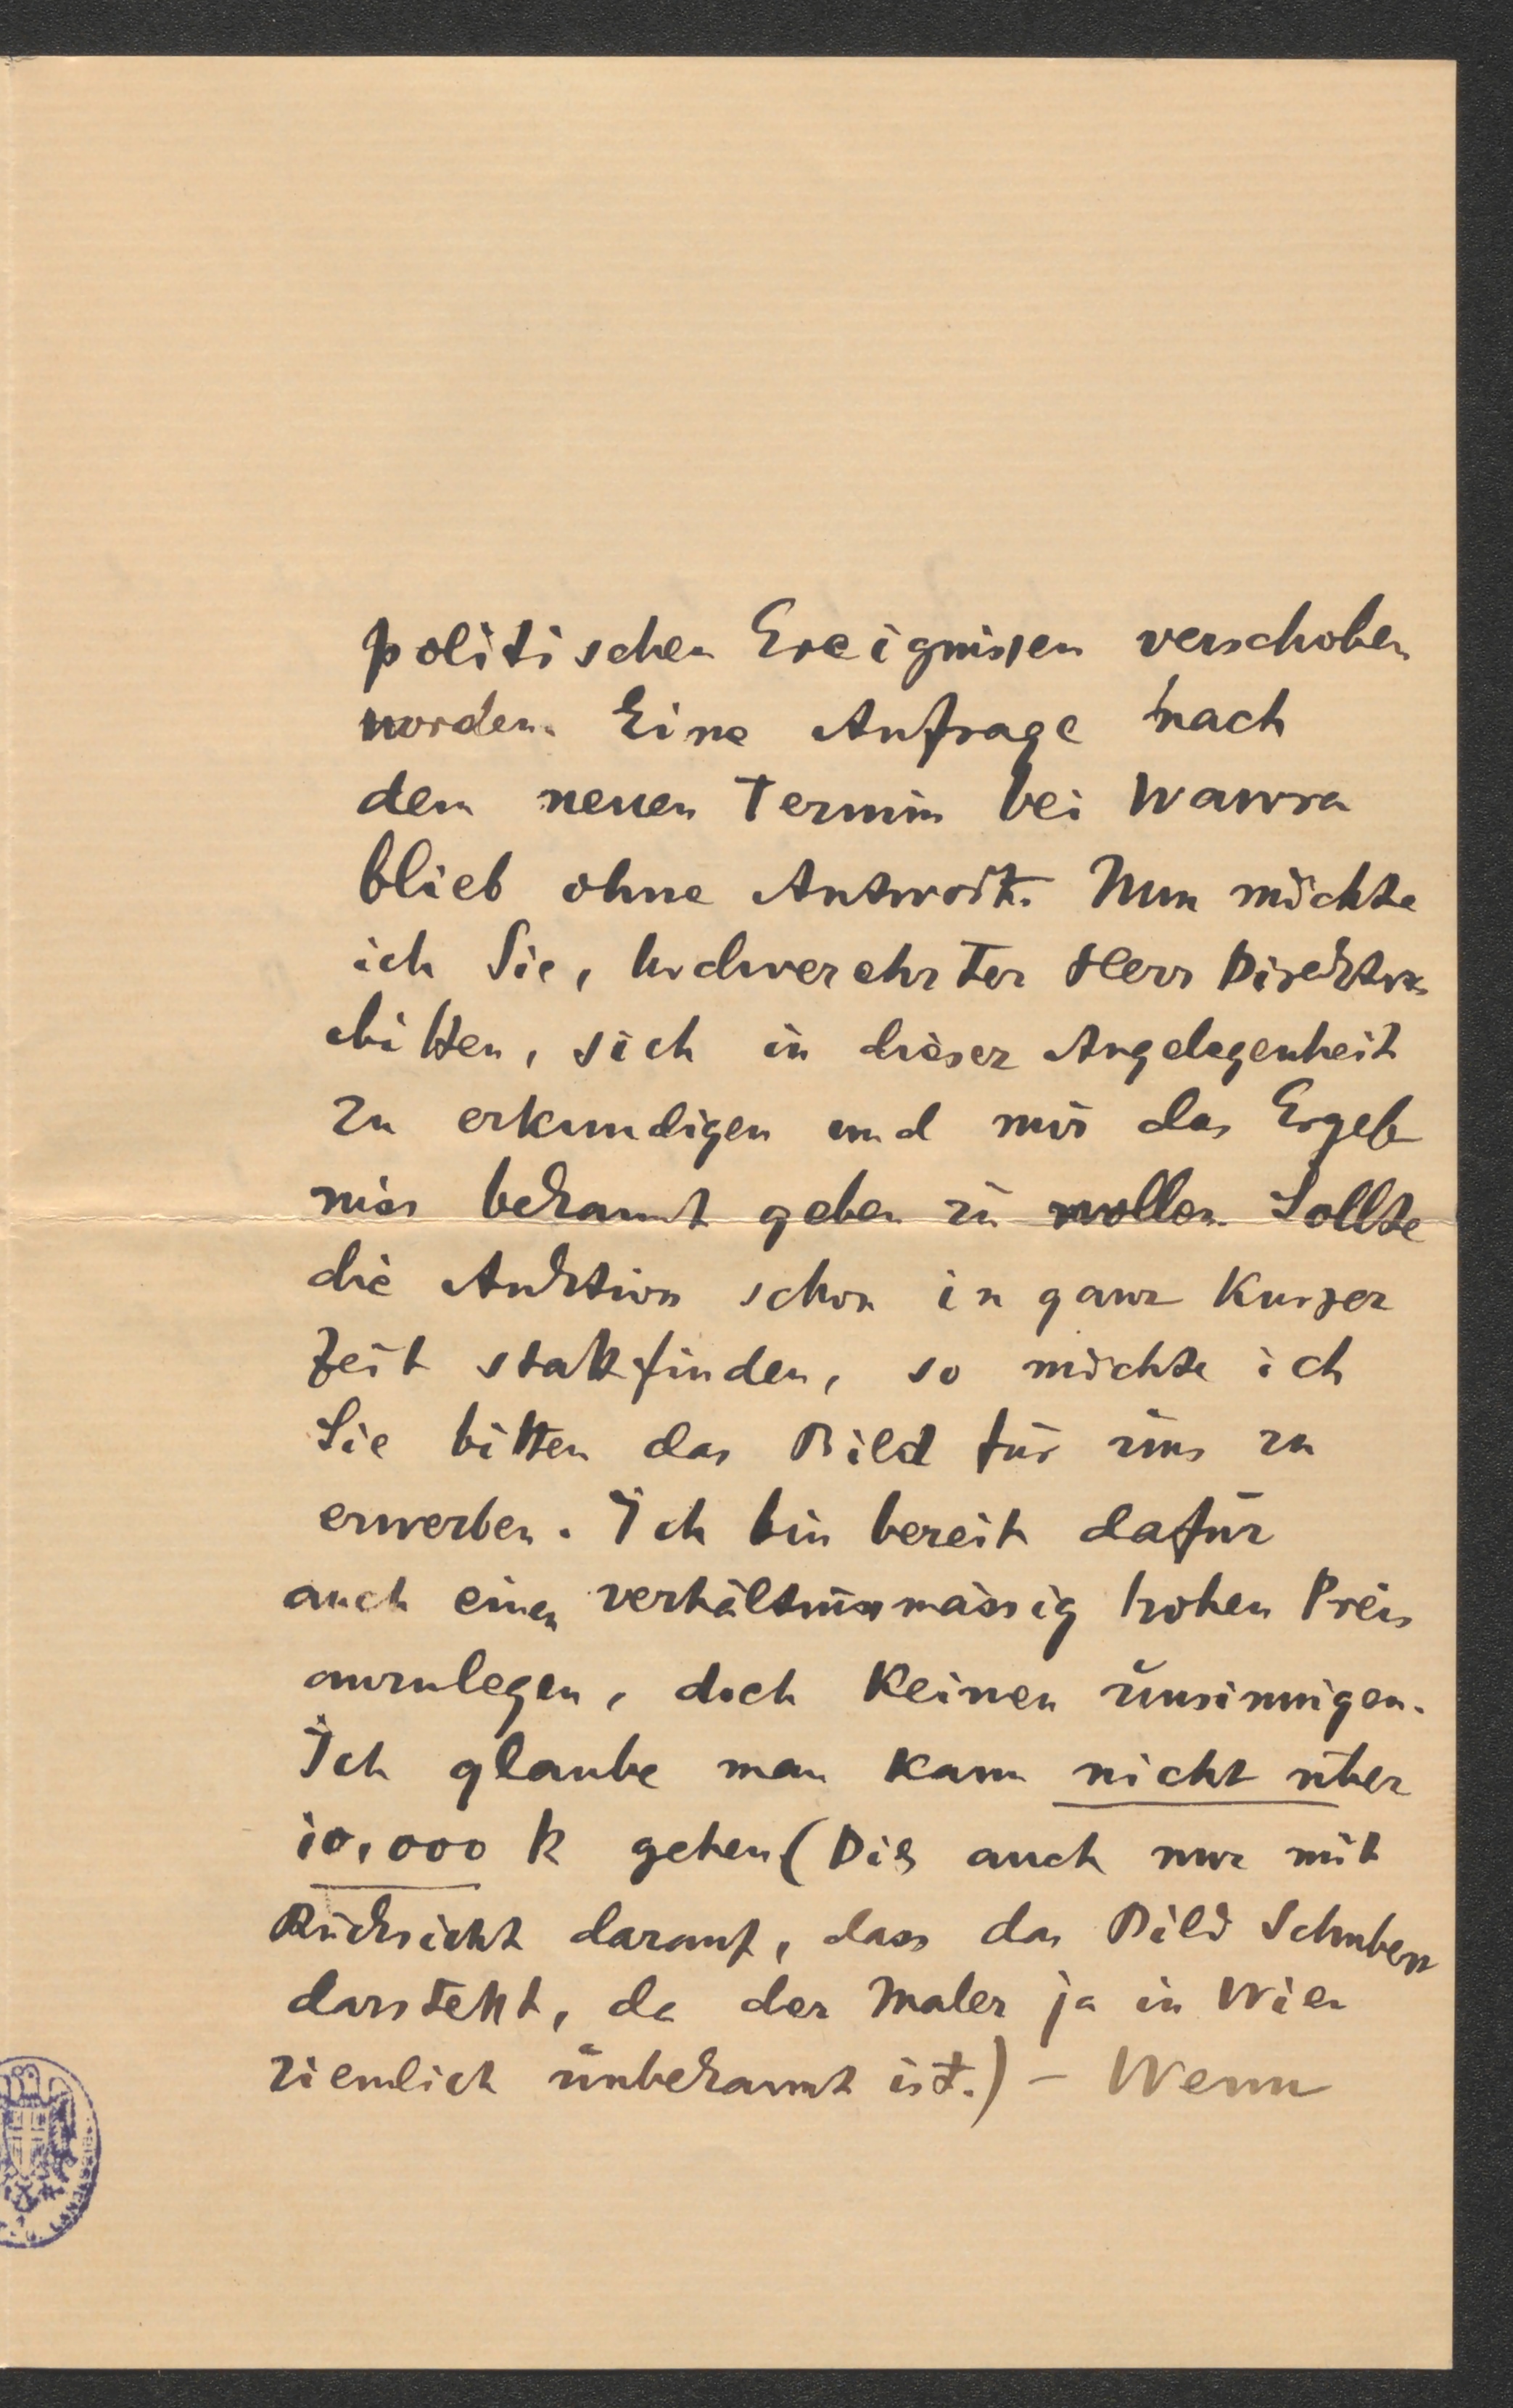 politischen Ereignissen verschoben
worden. Eine Anfrage nach
dem neuen Termin bei Wawra
blieb ohne Antwort. Nun möchte
ich Sie, hochverehrter Herr Direktor
bitten, sich in dieser Angelegenheit
zu erkundigen und mir das Ergeb
niss bekannt geben zu wollen. Sollte
die Auktion schon in ganz kurzer
Zeit stattfinden, so möchte ich
Sie bitten das Bild für uns zu
erwerben. Ich bin bereit dafür
auch einen verhältnissmässig hohen Preis
anzulegen, doch keinen unsinnigen.
Ich glaube man kann nicht über
10,000 K gehen (Dies auch nur mit
Rücksicht darauf, dass das Bild Schubert
darstellt, da der Maler ja in Wien
ziemlich unbekannt ist.) – Wenn